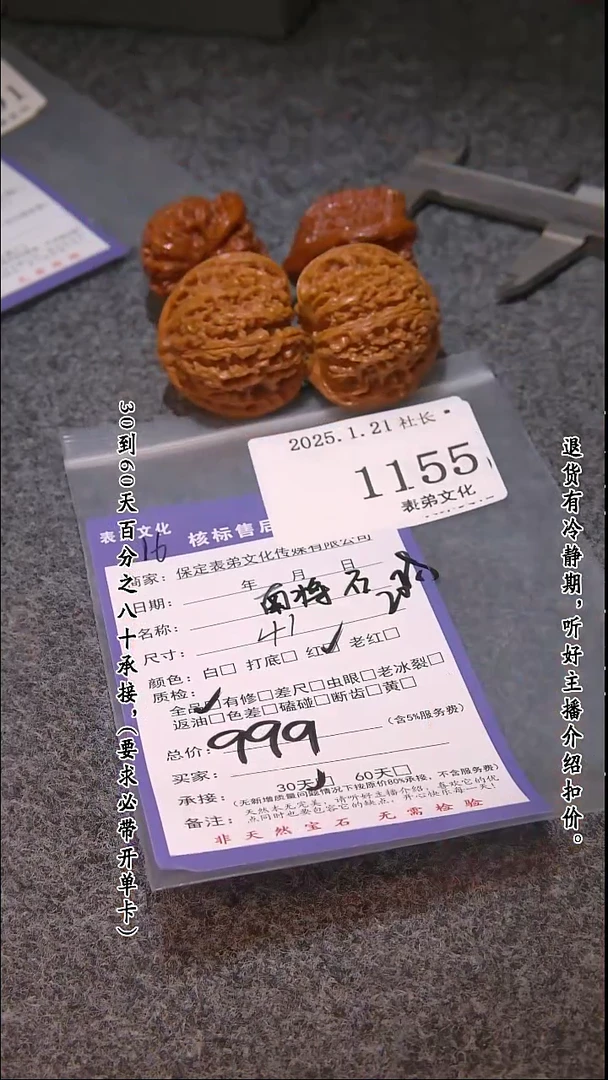 30到60天百分之八十承接，（要求必带开单卡）
退货有冷静期，听好主播介绍扣价。
2025.1.21 社长
1155
表弟文化
表 文化
16
核标售后
商家：保定表弟文化传媒有限公司
日期：年 月 日
名称：南将石
尺寸：41
颜色：白□ 打底□ 红□ 老红□
质检：
全品□有修□差尺□虫眼□老冰裂□
返油□色差□磕碰□断齿□黄□
总价：999 （含5%服务费）
买家：
承接：30天□ 60天□
（无新增质量问题情况下按原价80%承接，不含服务费）
备注：天然本无完美，请听好主播介绍，喜欢它的优
点同时也要包容它的缺点，开心快乐每一天！
非天然宝石 无需检验